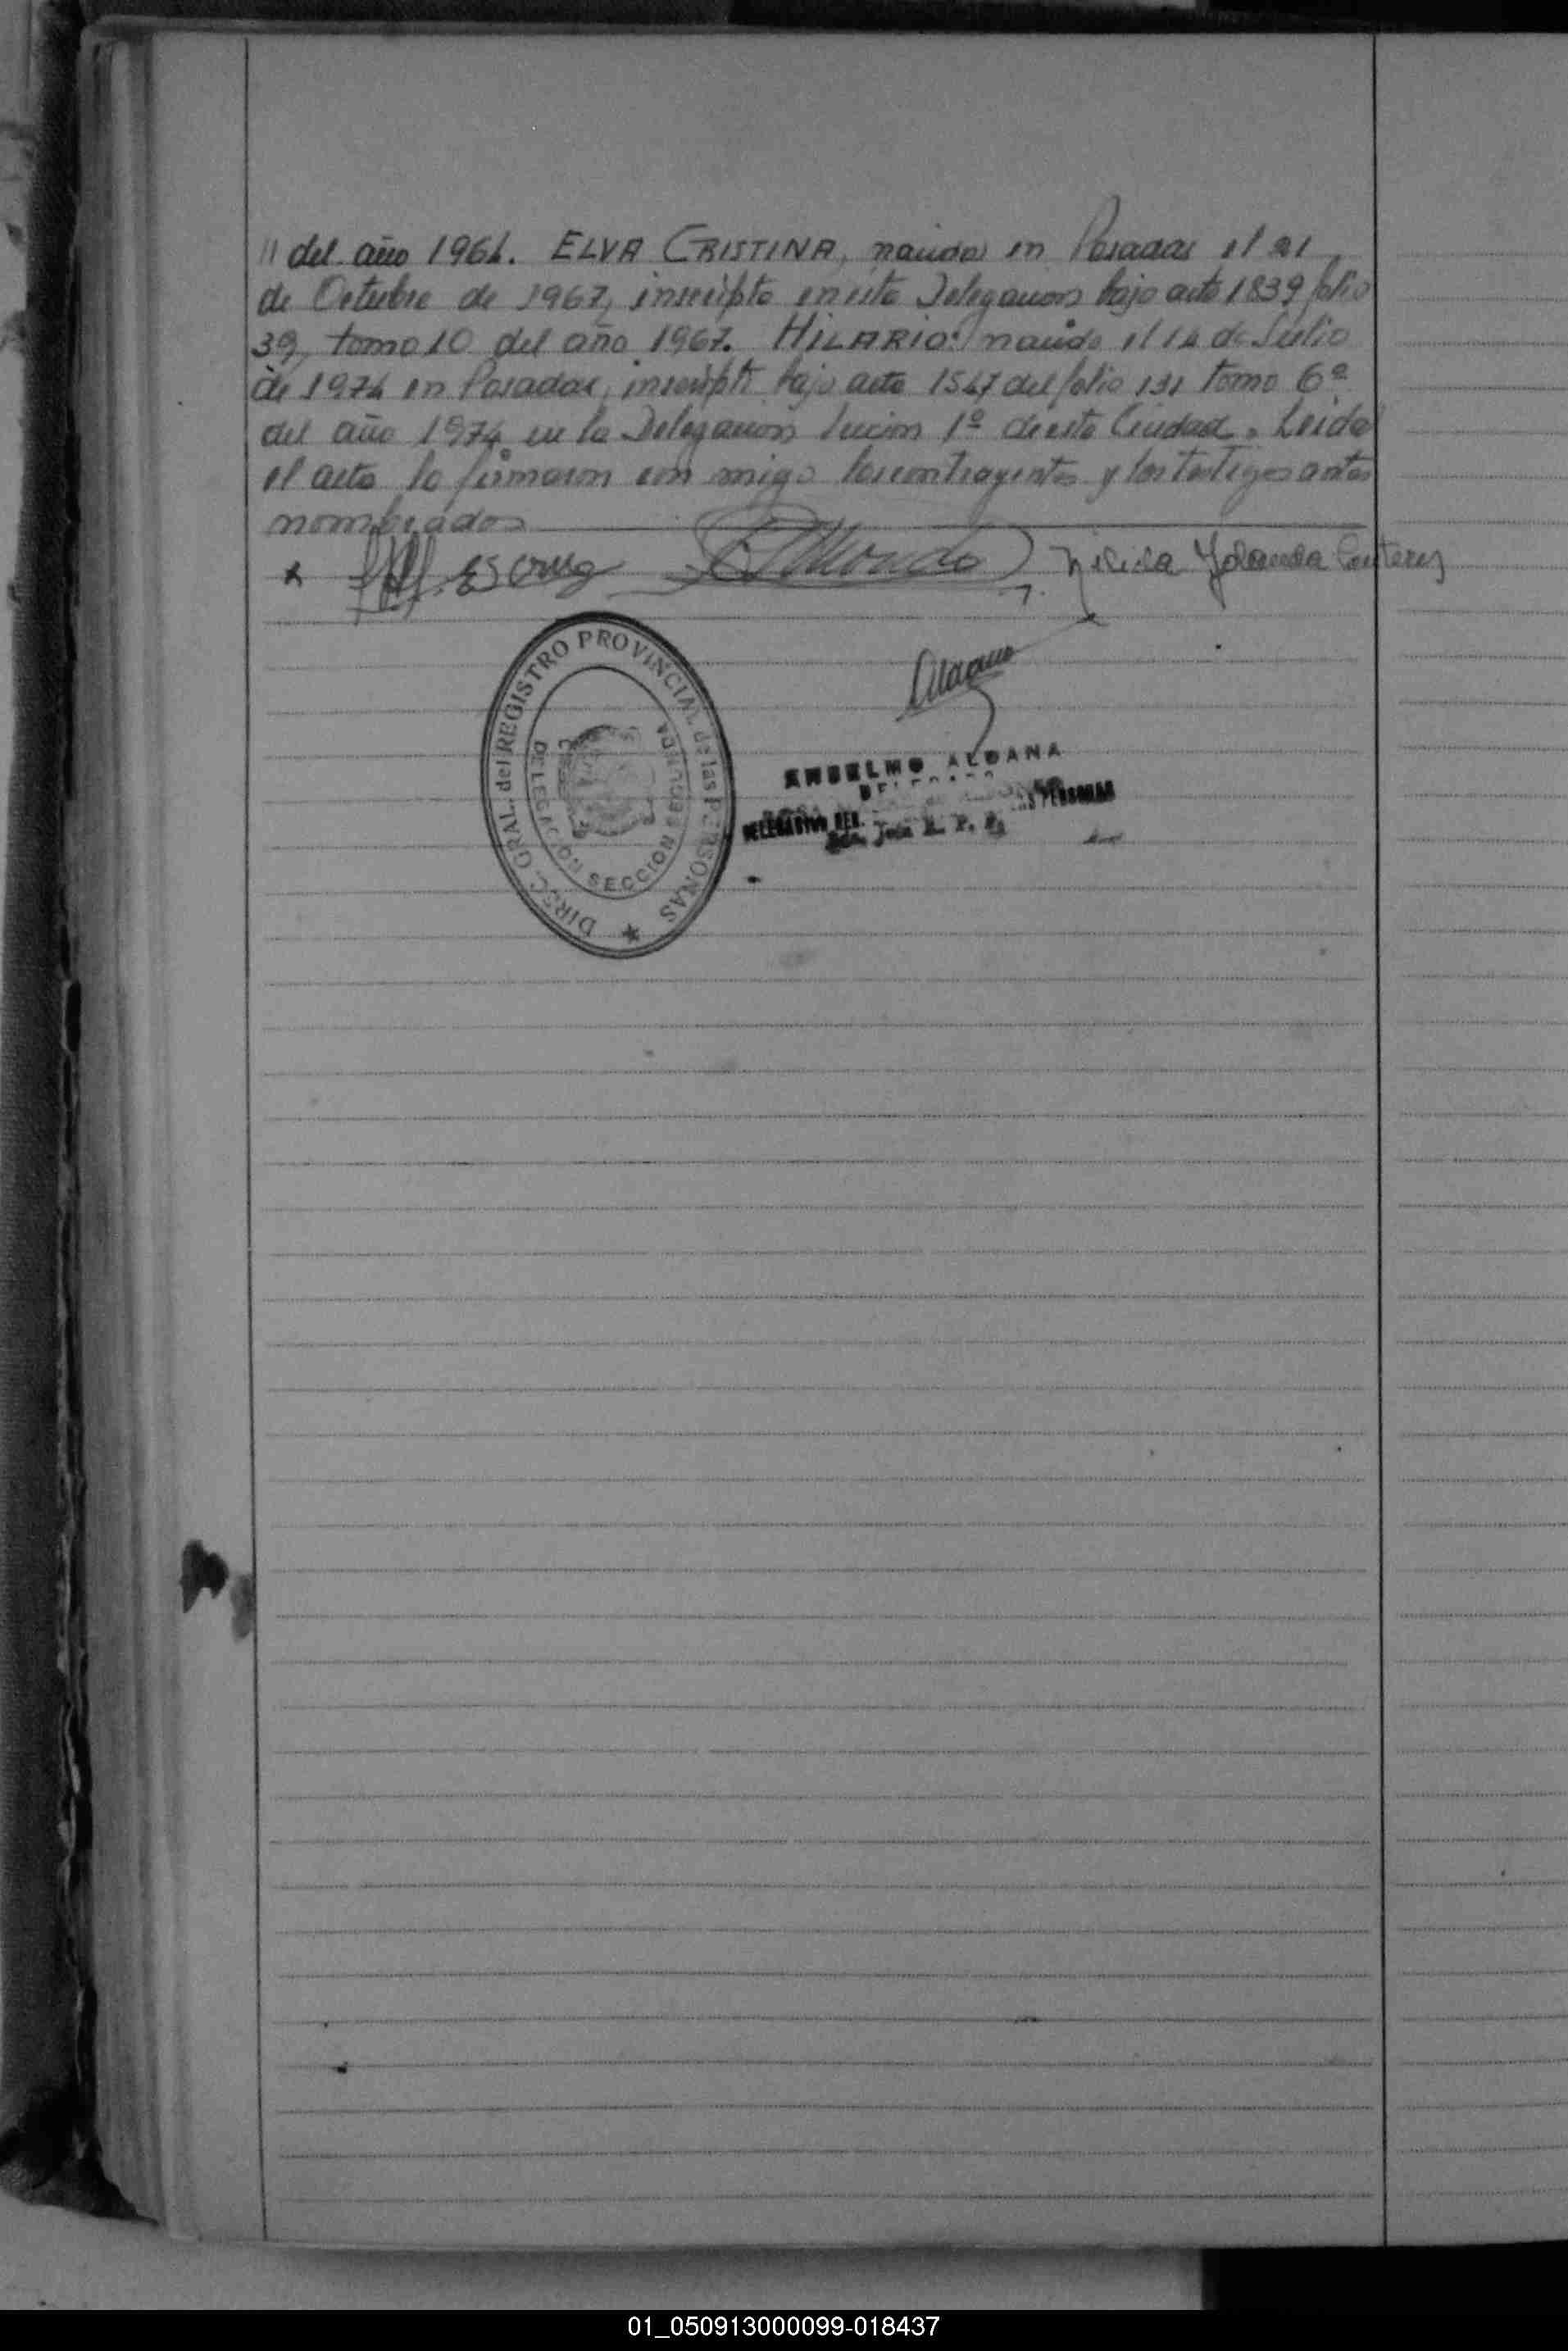 11 del año 1964. ELVA CRISTINA, nacida en Posadas el 21
de Octubre de 1967, inscripta en esta Delegacion bajo acta 1839 folio
39, tomo 10 del año 1967. HILARIO: nacido el 14 de Julio
de 1974 en Posadas, inscripto bajo acta 1547 del folio 131 tomo 6º
del año 1974 en la Delegacion 1º de esta Ciudad. Leida
el acta la firmaron con migo los contrayentes y los testigos antes
nombrados
Yolanda
DIREC. GRAL. del REGISTRO PROVINCIAL de las PERSONAS
DELEGACION SECCION SEGUNDA
ANSELMO ALDANA
DELEGADO
PERSONAS
01_050913000099-018437